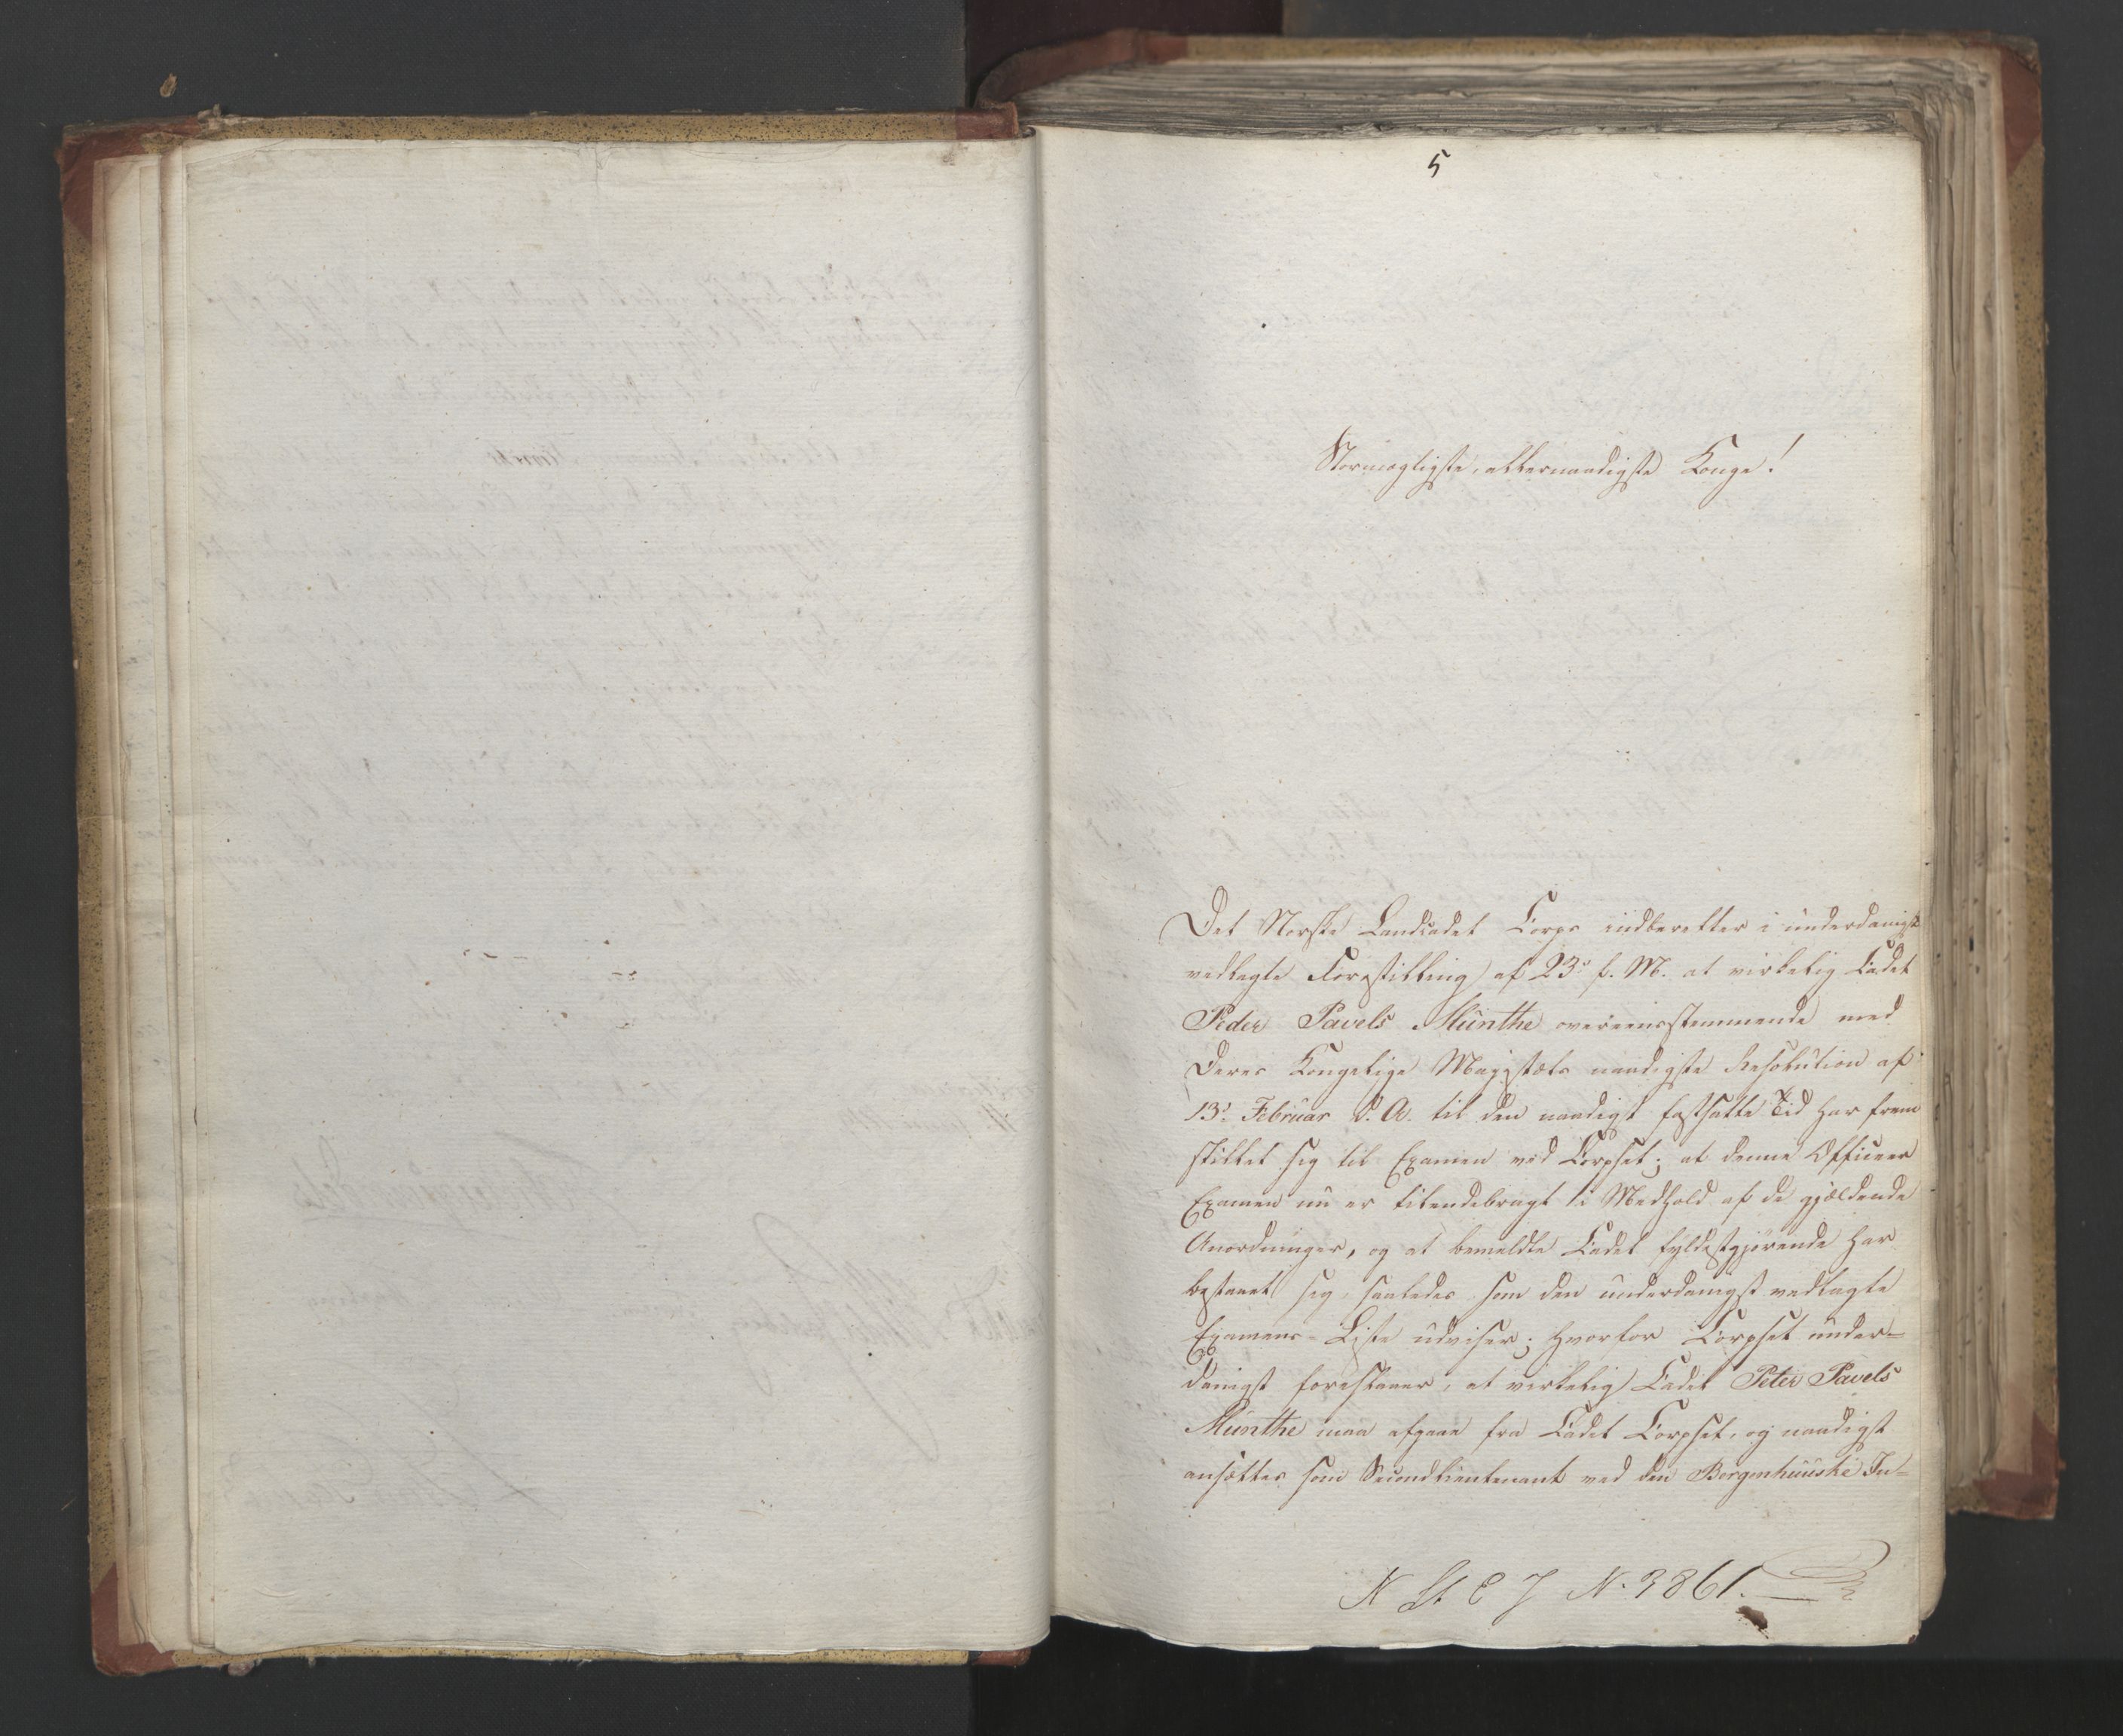 5
Stormægtigste, allernaadigste Konge!
Det Norske Landcadet Corps indberetter i underdanigst
vedlagte Forestilling af 23de f. M. at virkelig Cadet
Peder Pavels Munthe overeensstemmende med
Deres Kongelige Majestæts naadigste Resolution af
13de Februar d. A. til den naadigst fastsatte Tid har frem
stillet sig til Examen ved Corpset; at denne Officeer
Examen nu er tilendebragt i Medhold af de gjældende
Anordninger, og at bemeldte Cadet fyldestgjørende har
bestaaet sig, saaledes som den underdanigst vedlagte
Examens-Liste udviser; hvorfor Corpset under=
danigst foreslaaer, at virkelig Cadet Peter Pavels
Munthe maa afgaae fra Cadet Corpset, og naadigst
ansættes som Secondlieutenant ved den Bergenhuuske In=
N St E J N. 3861.